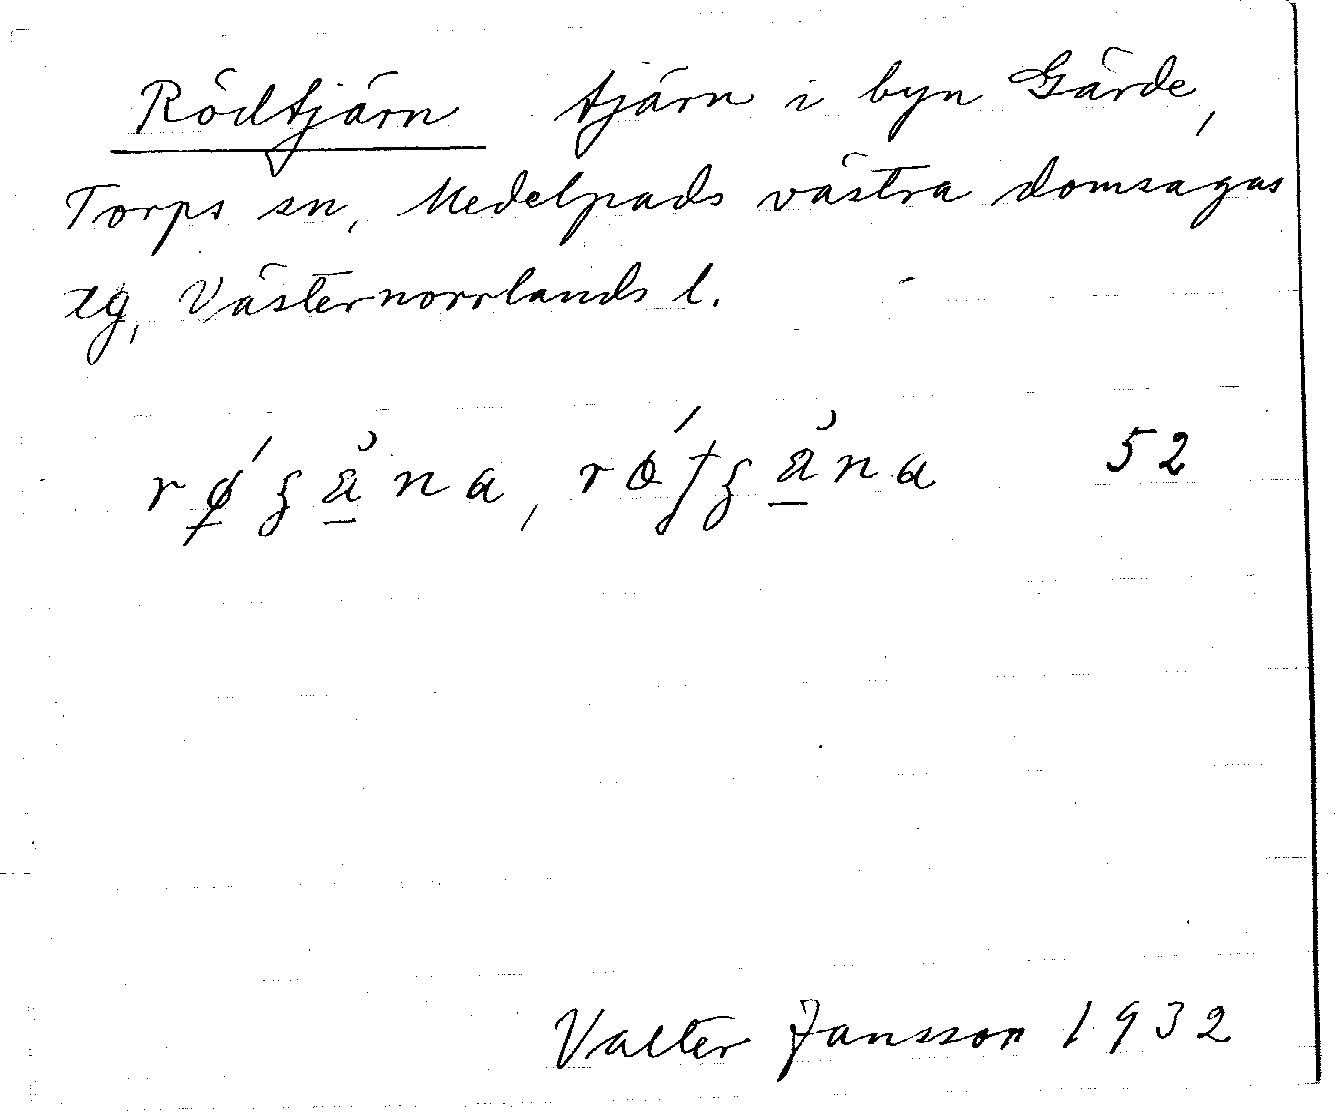 Rödtjärn tjärn i byn Gärde,
Torps sn, Medelpads västra domsagas
tg, Västernorrlands l.
rǿ̱ʒä̱̀na, rɵ́tʒä̱̀na 52
Valter Jansson 1932